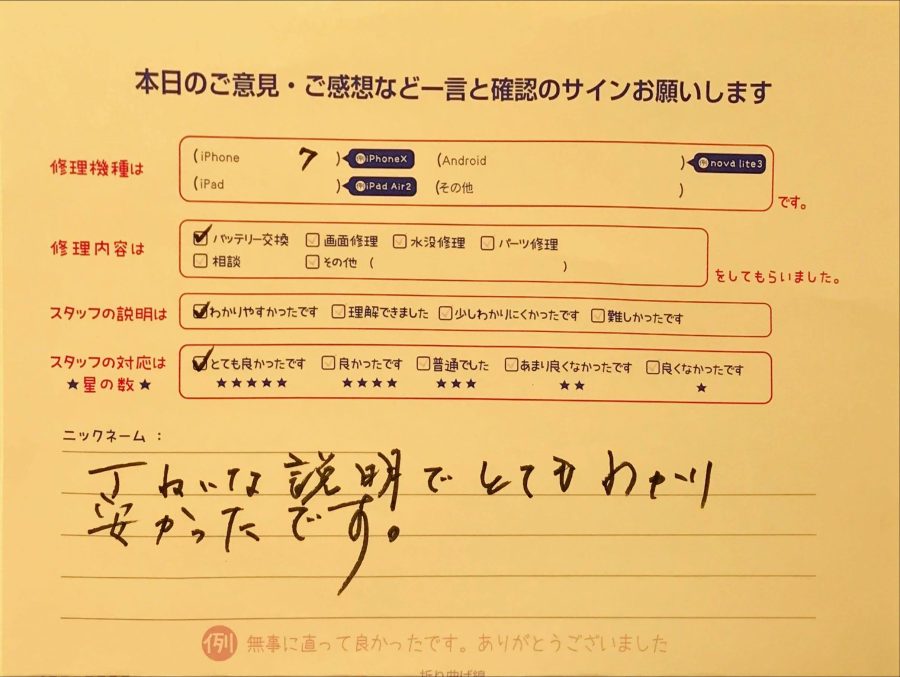 本日のご意見・ご感想など一言と確認のサインお願いします
修理機種は
(iPhone 7 ) 例iPhoneX (Android ) 例nova lite3
(iPad ) 例iPad Air2 (その他 )
です。
修理内容は
バッテリー交換 画面修理 水没修理 パーツ修理
相談 その他 ( )
をしてもらいました。
スタッフの説明は わかりやすかったです 理解できました 少しわかりにくかったです 難しかったです
スタッフの対応は とても良かったです 良かったです 普通でした あまり良くなかったです 良くなかったです
★星の数★ ★★★★★ ★★★★ ★★★ ★★ ★
ニックネーム：
丁ねいな説明でとてもわかり
安かったです。
例 無事に直って良かったです。ありがとうございました
折り曲げ線